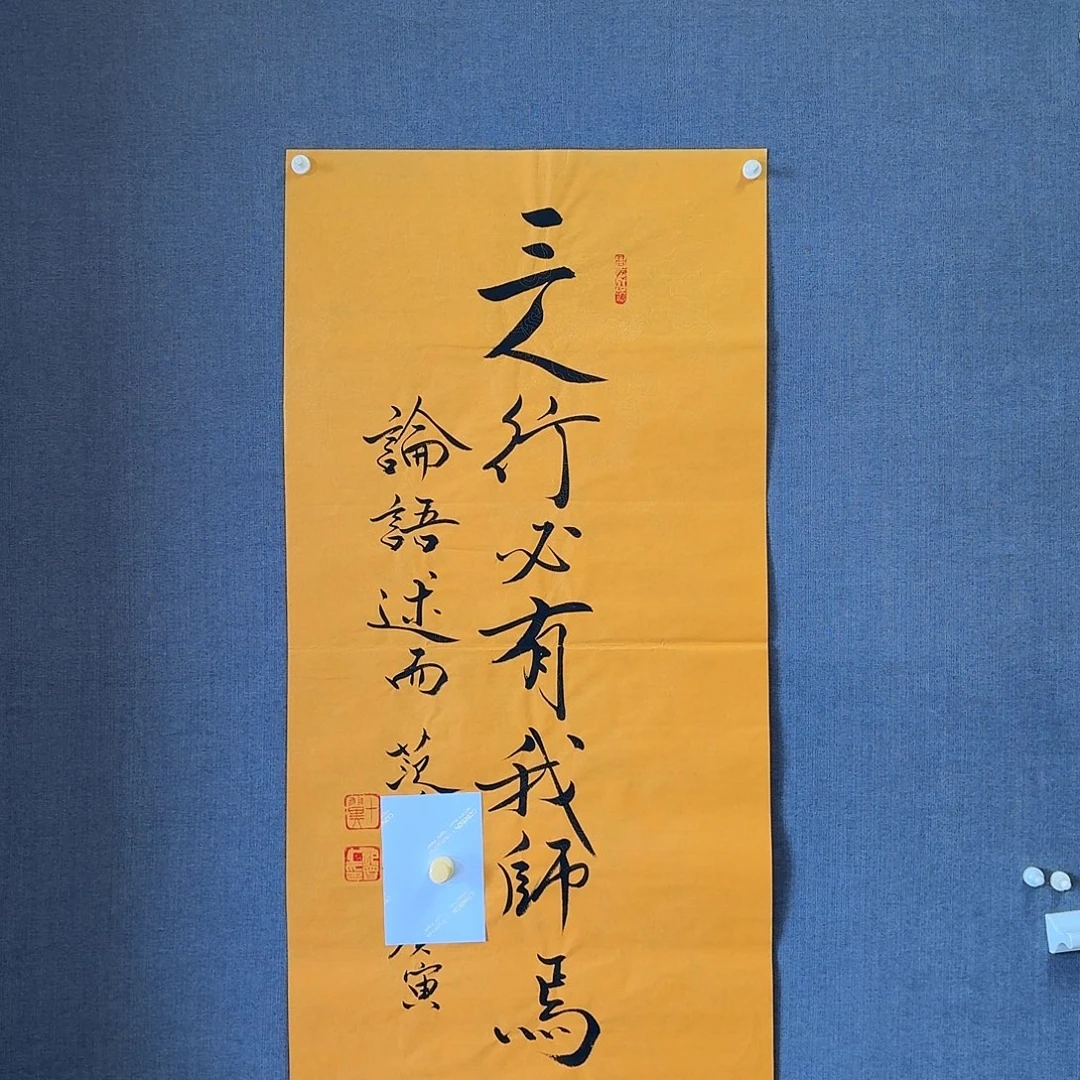 三人行必有我師焉
論語述而 范
寅